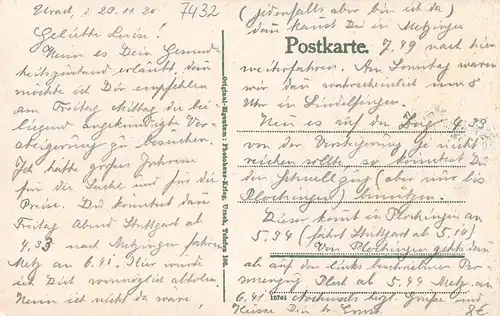 Urach, d 29 11 20. 7432
Geliebte Luise!
Wenn es Dein Gesund-
heitszustand erlaubt, dann
möchte ich Dir empfehlen
am Freitag Mittag die bei-
liegend angekündigte Ver-
steigerung zu besuchen.
Ich hätte großes Interesse
für die Sache und für die
Preise. Du könntest dann
Freitag Abend Stuttgart ab
4.33 nach Metzingen fahren
Metz an 6.41. Hier würde
ich Dich womöglich abholen.
Wenn ich nicht da wäre,
Original-Eigentum: Photohaus-Krieg, Urach, Telefon 108.
(jedenfalls aber bin ich da)
dann kannst Du in Metzingen
Postkarte. 7.49 nach hier
weiterfahren. Am Sonntag wären
wir dann wahrscheinlich um 8
Uhr in Sindelfingen.
Wenn es auf den Zug 4.33
von der Versteigerung je nicht
reichen sollte so könntest Du
den Schnellzug (aber nur bis
Plochingen) benützen.
Dieser kommt in Plochingen an
5.34 (fährt Stuttgart ab 5.10)
Von Plochingen geht's dann
ab auf den links beschriebenen Per-
sonenzug Ploch ab 5.44 Metz an
6.41 Nochmals Grüße und
15761
Küsse Dein Ernst.